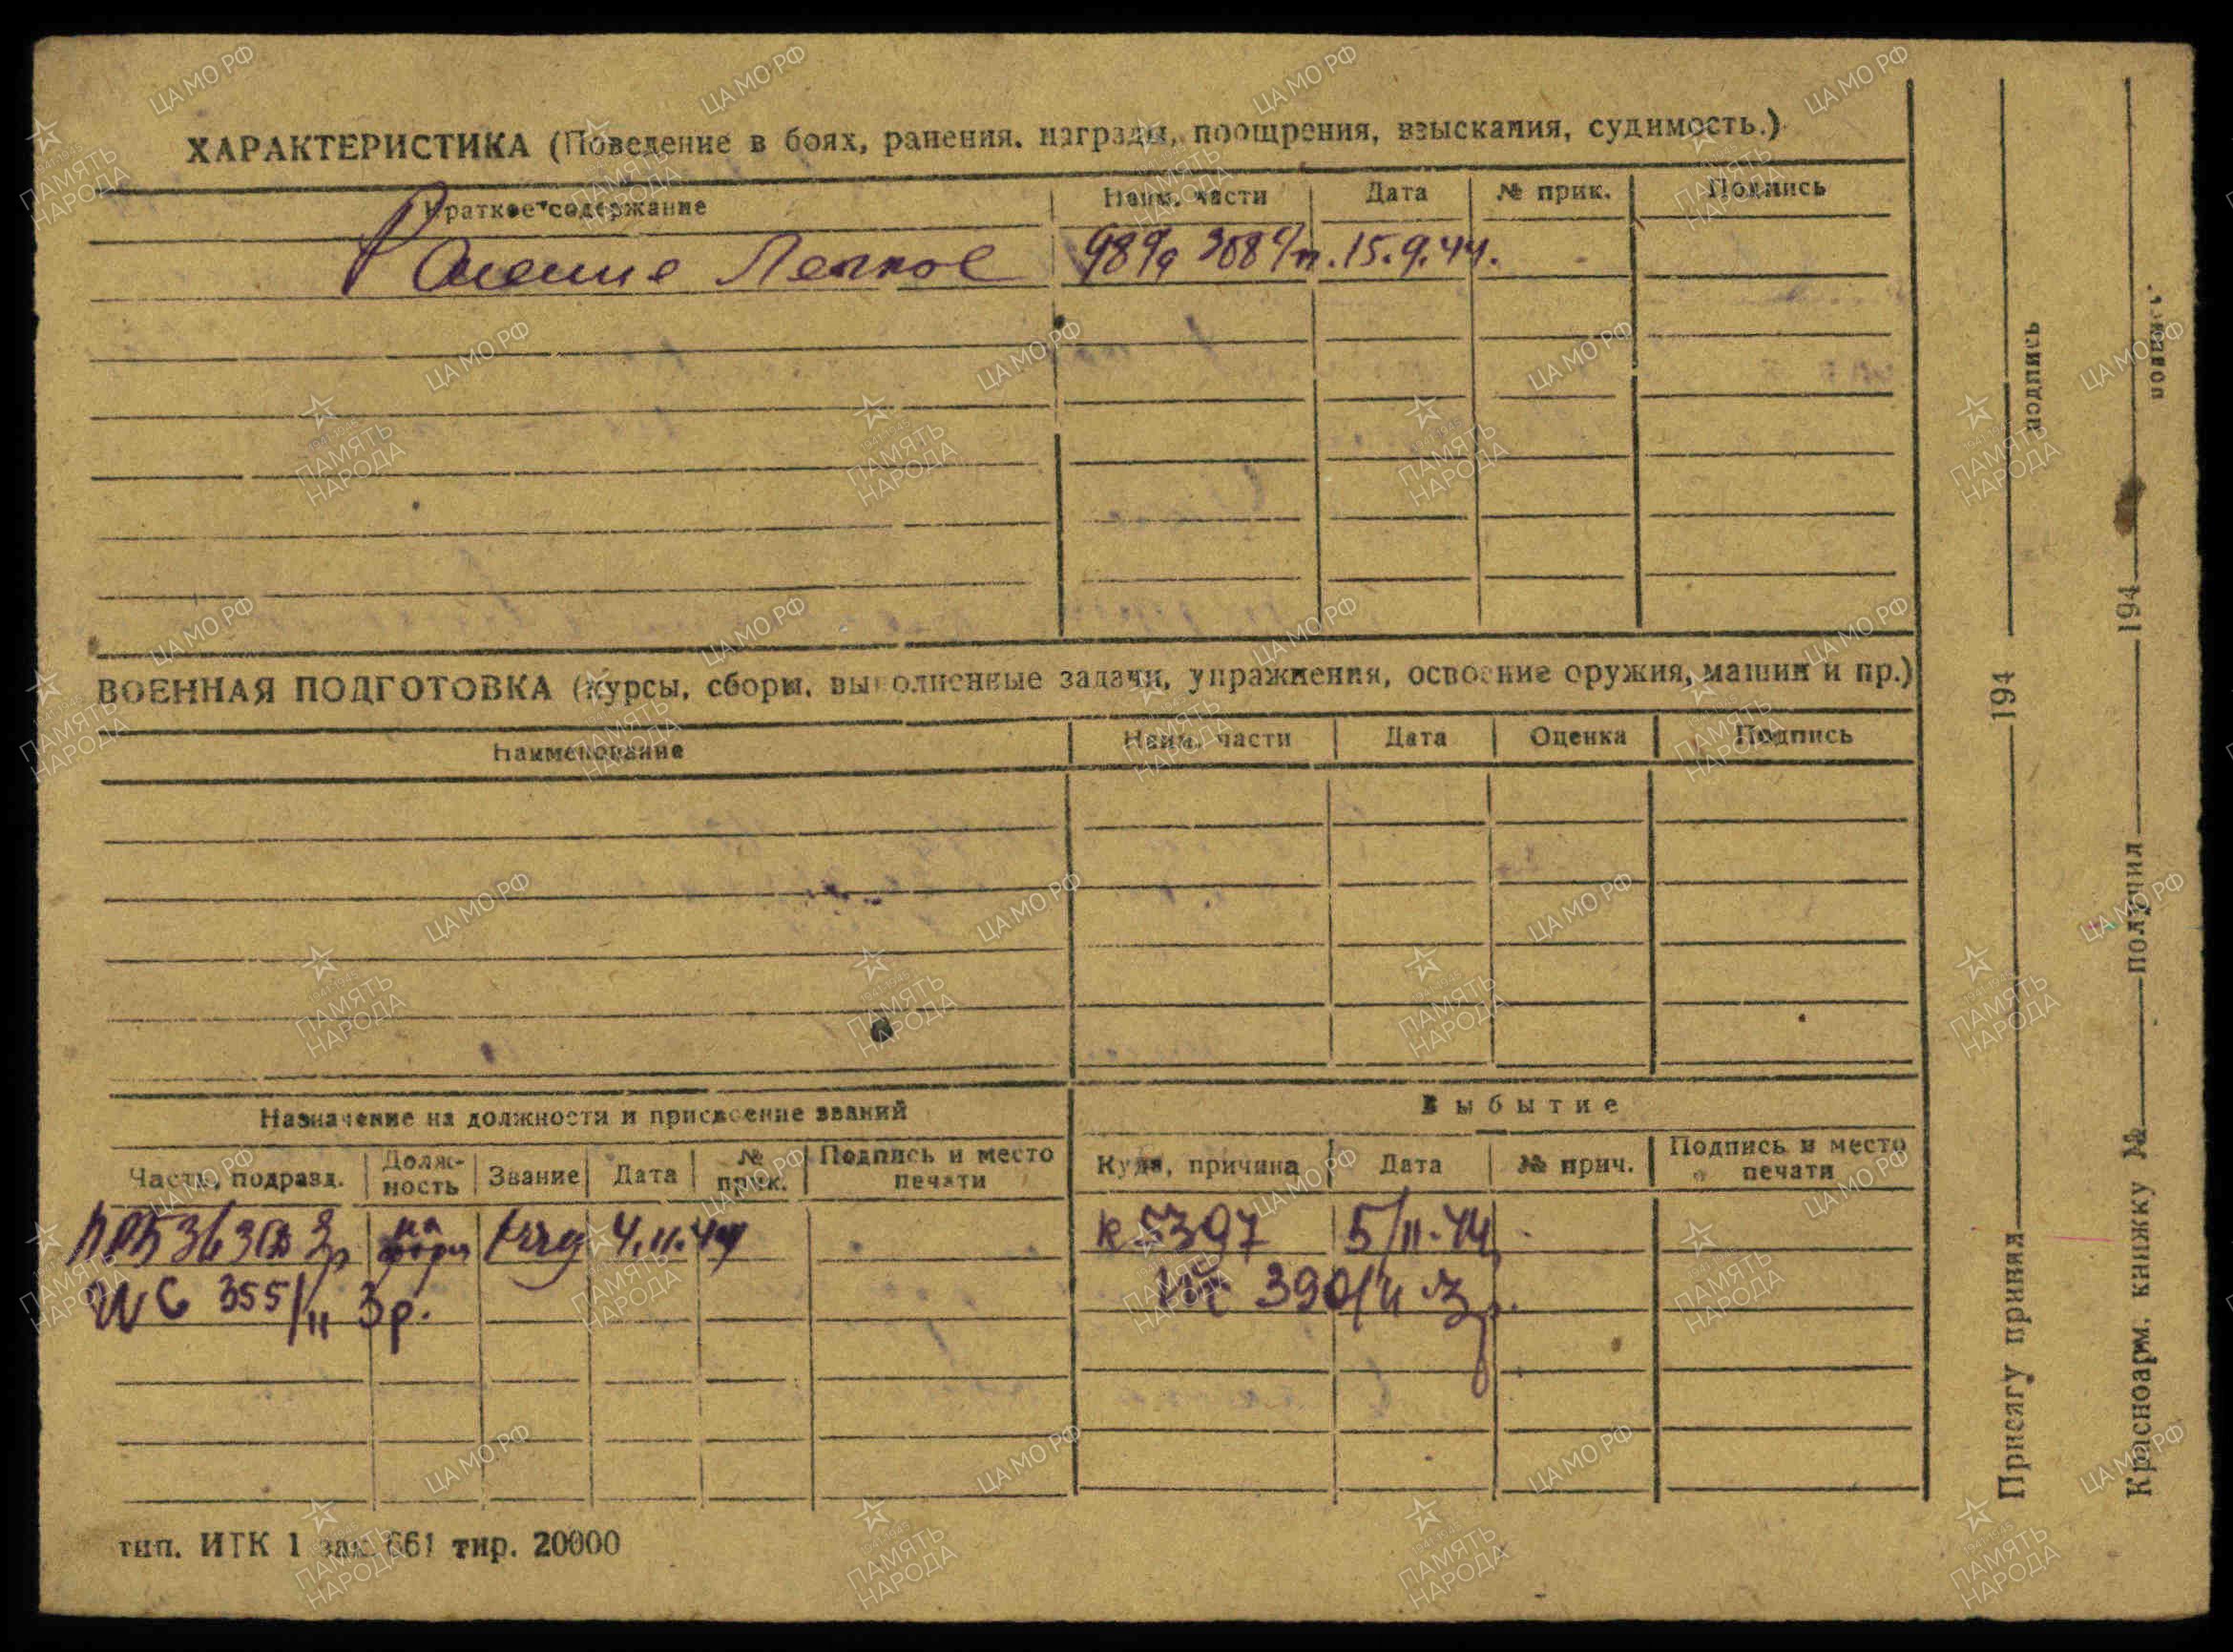 ХАРАКТЕРИСТИКА (Поведение в боях, ранения, награды, поощрения, взыскания, судимость.)
Краткое содержание Наим. части Дата № прик. Подпись
Ранение Легкое 98 308 15.9.44.
ВОЕННАЯ ПОДГОТОВКА (курсы, сборы, выполненные задачи, упражнения, освоение оружия, машин и пр.)
Наименование Наим. части Дата Оценка Подпись
Назначение на должности и присвоение званий
Выбытие
Часть, подразд. Долж-ность Звание Дата № прик. Подпись и место печати
Куда, причина Дата № прич. Подпись и место печати
на 4.11.44
к 5397 5/11.44
355/11 3р.
390/4
тип. ИТК 1 зак. 661 тир. 20000
Присягу принял 194 подпись
Красноарм. книжку № получил 194 подпись.
ЦА МО РФ
1941-1945
ПАМЯТЬ
НАРОДА